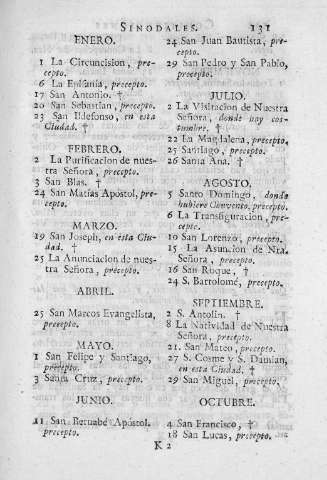 SINODALES. 131
ENERO.
1 La Circuncision, pre-
cepto.
6 La Epifanía, precepto.
17 San Antonio. †
20 San Sebastian, precepto.
23 San Ildefonso, en esta
Ciudad. †
FEBRERO.
2 La Purificacion de nues-
tra Señora, precepto.
3 San Blas. †
24 San Matías Apóstol, pre-
cepto.
MARZO.
19 San Joseph, en esta Ciu-
dad. †
25 La Anunciacion de nues-
tra Señora, precepto.
ABRIL.
25 San Marcos Evangelista,
precepto.
MAYO.
1 San Felipe y Santiago,
precepto.
3 Santa Cruz, precepto.
JUNIO.
11 San Bernabé Apóstol.
precepto.
24 San Juan Bautista, pre-
cepto.
29 San Pedro y San Pablo,
precepto.
JULIO.
2 La Visitacion de Nuestra
Señora, donde hay cos-
tumbre. †
22 La Magdalena, precepto.
25 Santiago, precepto.
26 Santa Ana. †
AGOSTO.
5 Santo Domingo, donde
hubiere Convento, precepto.
6 La Transfiguracion, pre-
cepto.
10 San Lorenzo, precepto.
15 La Asuncion de Nra.
Señora, precepto.
16 San Roque, †
24 S. Bartolomé, precepto.
SEPTIEMBRE.
2 S. Antolin. †
8 La Natividad de Nuestra
Señora, precepto.
21. San Mateo, precepto.
27 S. Cosme y S. Damian,
en esta Ciudad. †
29 San Miguel, precepto.
OCTUBRE.
4 San Francisco, †
18 San Lucas, precepto.
K 2